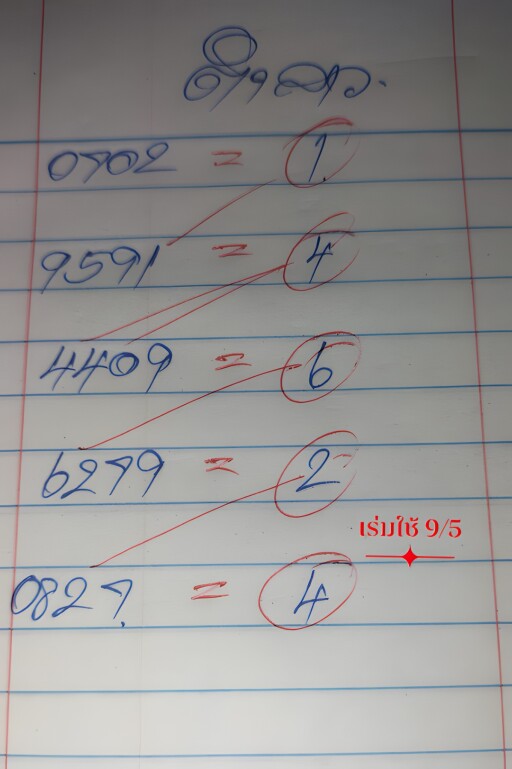 ตัวลาว.
0702 = 1.
9591 = 4
4409 = 6
6279 = 2
เร่มใช้ 9/5
0827. = 4